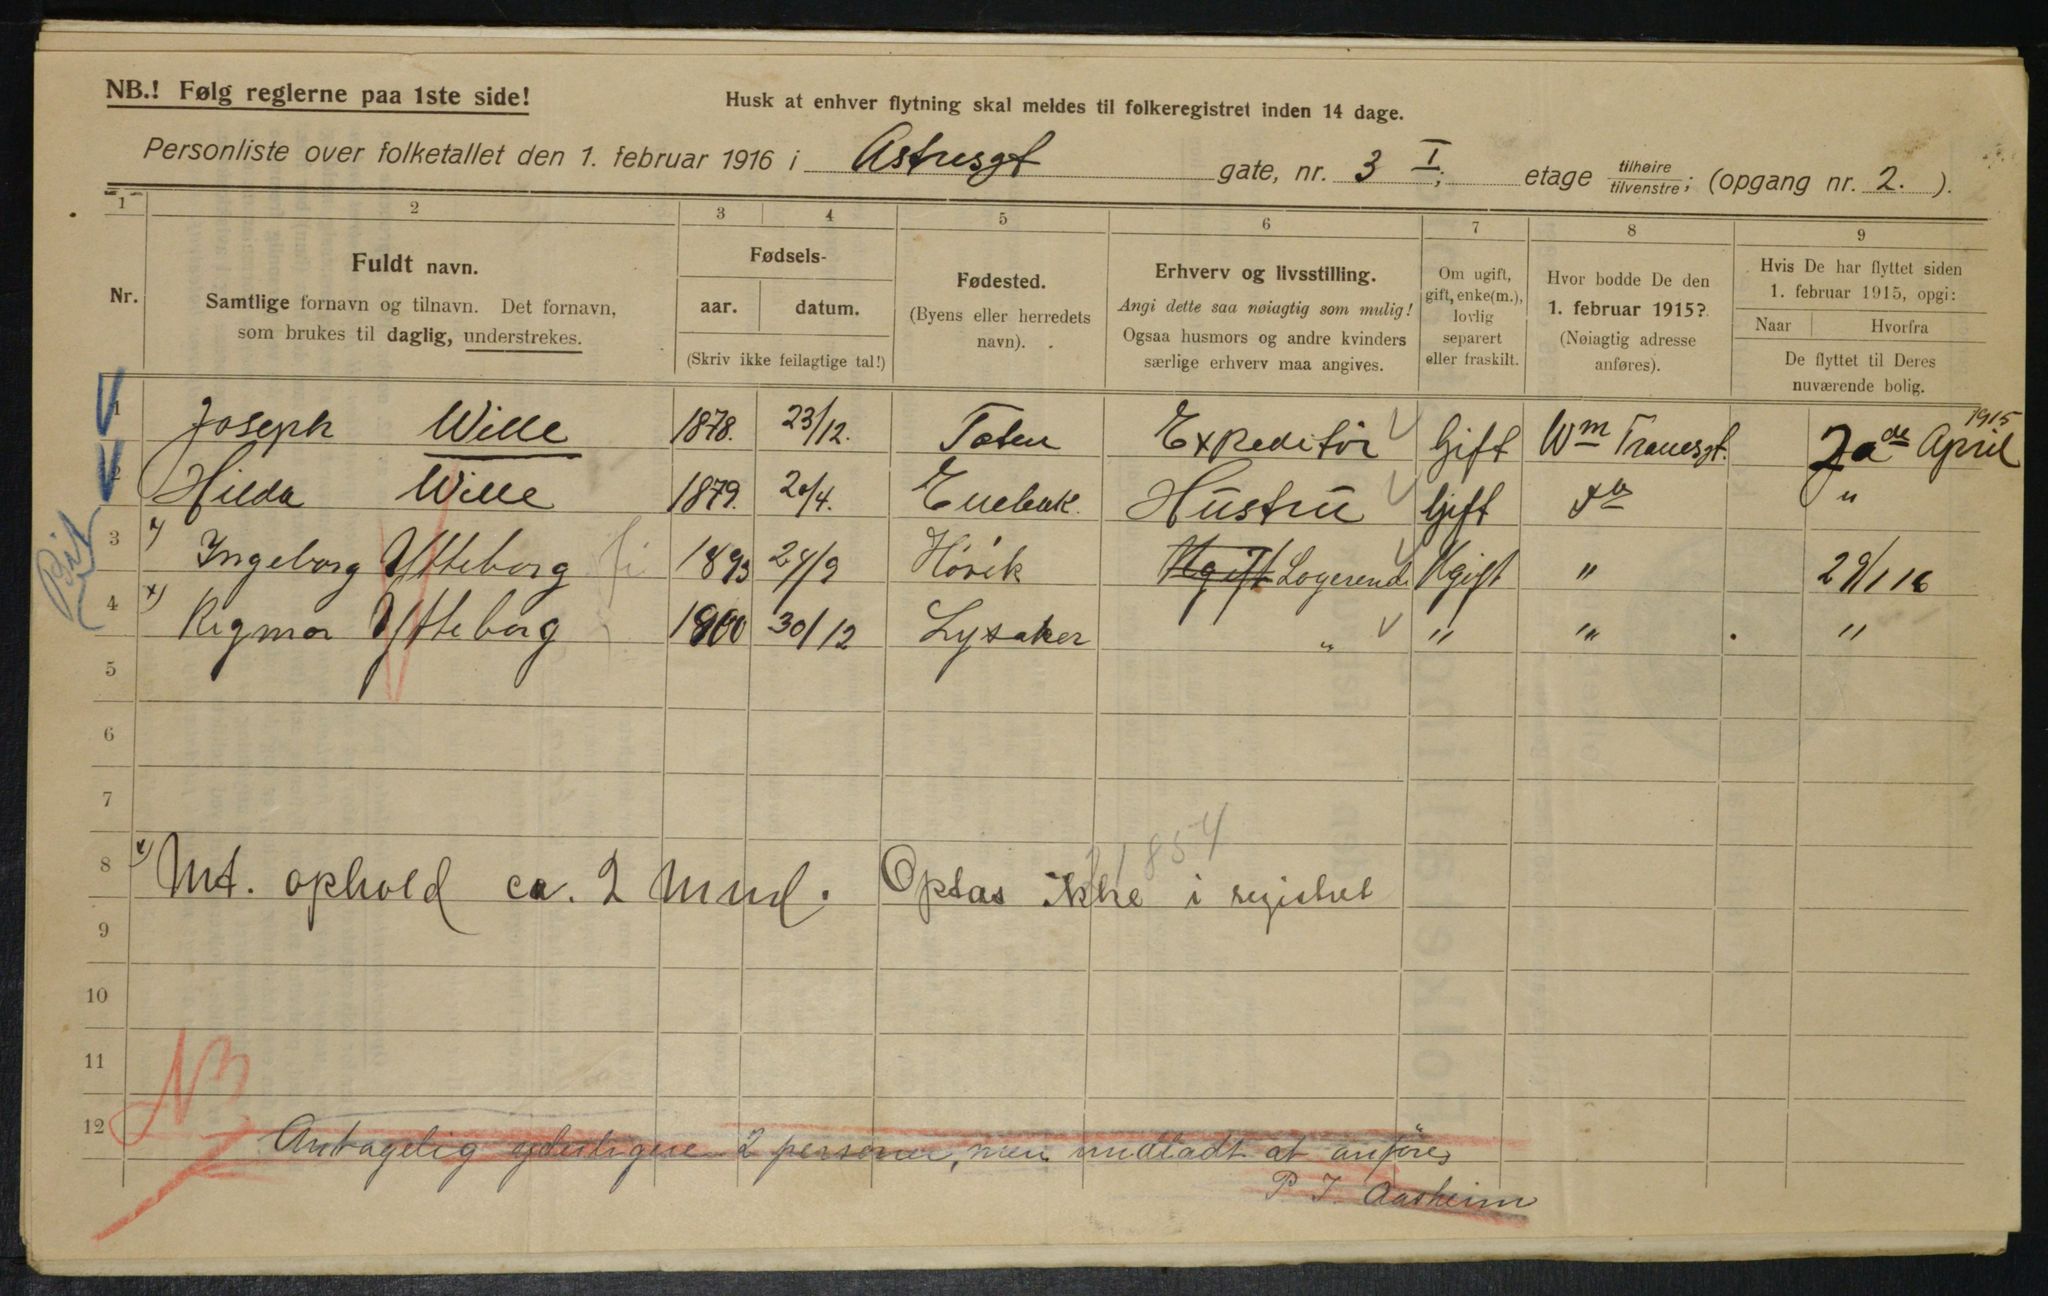 NB.! Følg reglerne paa 1ste side!
Husk at enhver flytning skal meldes til folkeregistret inden 14 dage.
Personliste over folketallet den 1. februar 1916 i Astrusgt gate, nr. 3 I; etage tilhøire tilvenstre; (opgang nr. 2. ).
1 2 3 4 5 6 7 8 9
Nr.
Fuldt navn.
Samtlige fornavn og tilnavn. Det fornavn,
som brukes til daglig, understrekes.
Fødsels-
aar. datum.
(Skriv ikke feilagtige tal!)
Fødested.
(Byens eller herredets
navn).
Erhverv og livsstilling.
Angi dette saa nøiagtig som mulig!
Ogsaa husmors og andre kvinders
særlige erhverv maa angives.
Om ugift,
gift, enke(m.),
lovlig
separert
eller fraskilt.
Hvor bodde De den
1. februar 1915?
(Nøiagtig adresse
anføres).
Hvis De har flyttet siden
1. februar 1915, opgi:
Naar Hvorfra
De flyttet til Deres
nuværende bolig.
1 Joseph Wille 1878. 23/12. Toten Expeditør Gift Wm Tranesgt. 2de April 1915
2 Hilda Wille 1879. 2/4. Enebak. Hustru Gift do "
3 x) Ingeborg Ytteborg 1893 24/9 Høvik Ugift Logerend. Ugift " 29/1 16
4 x) Rigmor Ytteborg 1900 30/12 Lysaker " " " "
5
6
7
21854
8 x) Mt. ophold ca. 2 mnd. Optas ikke i registret
9
10
11
NB
12 Antagelig yderligere 2 personer, men undladt at anføres
P. I. Aasheim